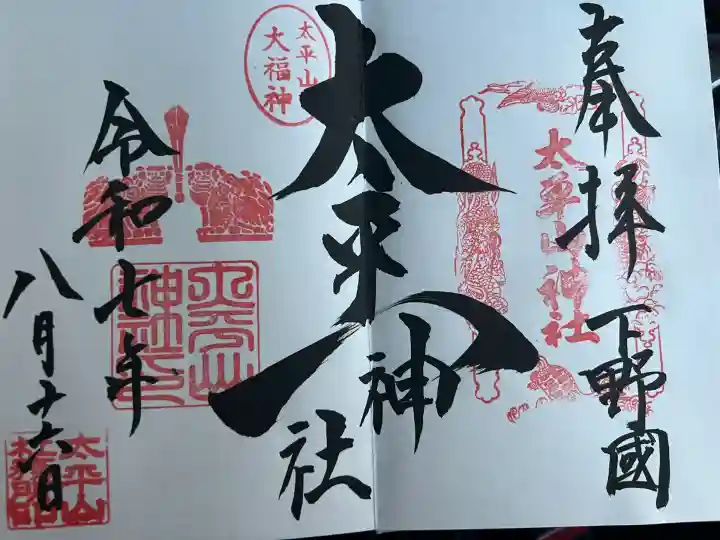 奉拝 下野國
太平山神社
太平山神社
太平山
大福神
令和七年
八月十六日
太平山
神社印
太平山